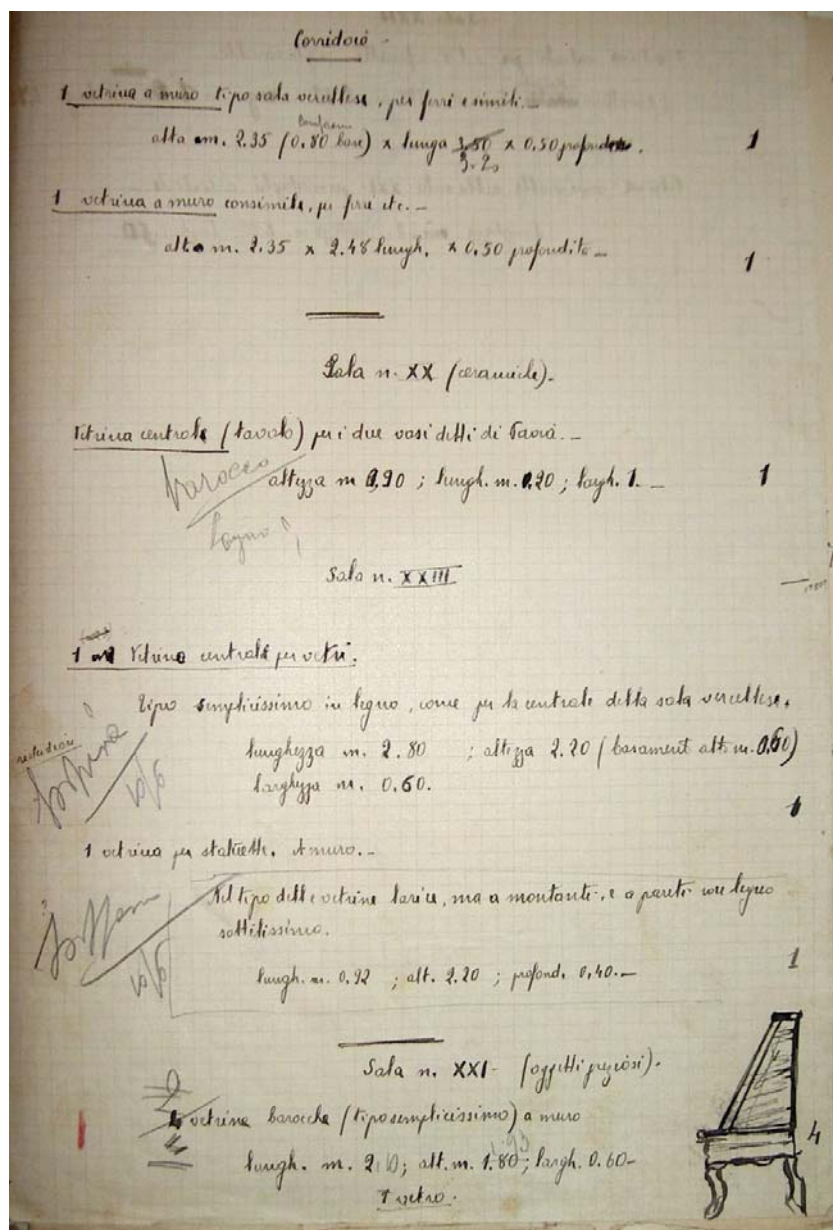 Corridoio -
1 vetrina a muro tipo sala vercellese, per ferri e simili. -
alta m. 2.35 (0.80 base) x lunga 3.50 x 0.50 profondità. 1
3.20
1 vetrina a muro consimile, per ferri etc. -
alta m. 2.35 x 2.48 lungh. x 0.50 profondità - 1
Sala n. XX (ceramiche).-
Vetrina centrale (tavolo) per i due vasi detti di Savoia. -
barocco
altezza m 0,90 ; lungh. m. 0.90 ; largh. 1. - 1
legno ?
Sala n. XXIII
1 Vetrina centrale per vetri.
Tipo semplicissimo in legno, come per la centrale della sala vercellese.
lunghezza m. 2.80 ; altezza 2.20 (basament alt. m. 0.60)
larghezza m. 0.60.
10/6
1
1 vetrina per statuette. A muro. -
?
Nel tipo delle vetrine larice, ma a montanti, e a pareti con legno
sottilissimo.
10/6
1
lungh. m. 0.92 ; alt. 2.20 ; profond. 0,40. -
Sala n. XXI - (oggetti preziosi).
vetrine barocche (tipo semplicissimo) a muro
4
lungh. m. 2.10; alt. m. 1.80; largh. 0.60 -
1 vetro.